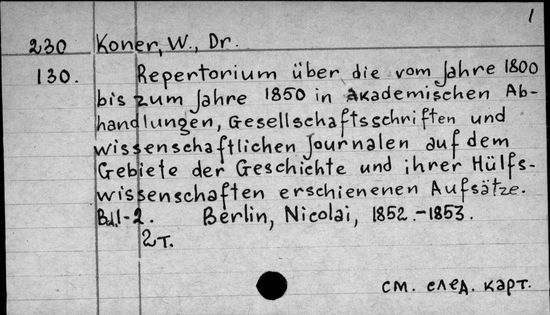 1
230 Koner, W., Dr.
130. Repertorium über die vom Jahre 1800
bis zum Jahre 1850 in akademischen Ab-
handlungen, Gesellschaftsschriften und
wissenschaftlichen Journalen auf dem
Gebiete der Geschichte und ihrer Hülfs-
wissenschaften erschienenen Aufsätze.
Bd.1-2. Berlin, Nicolai, 1852.-1853.
2т.
см. след. карт.